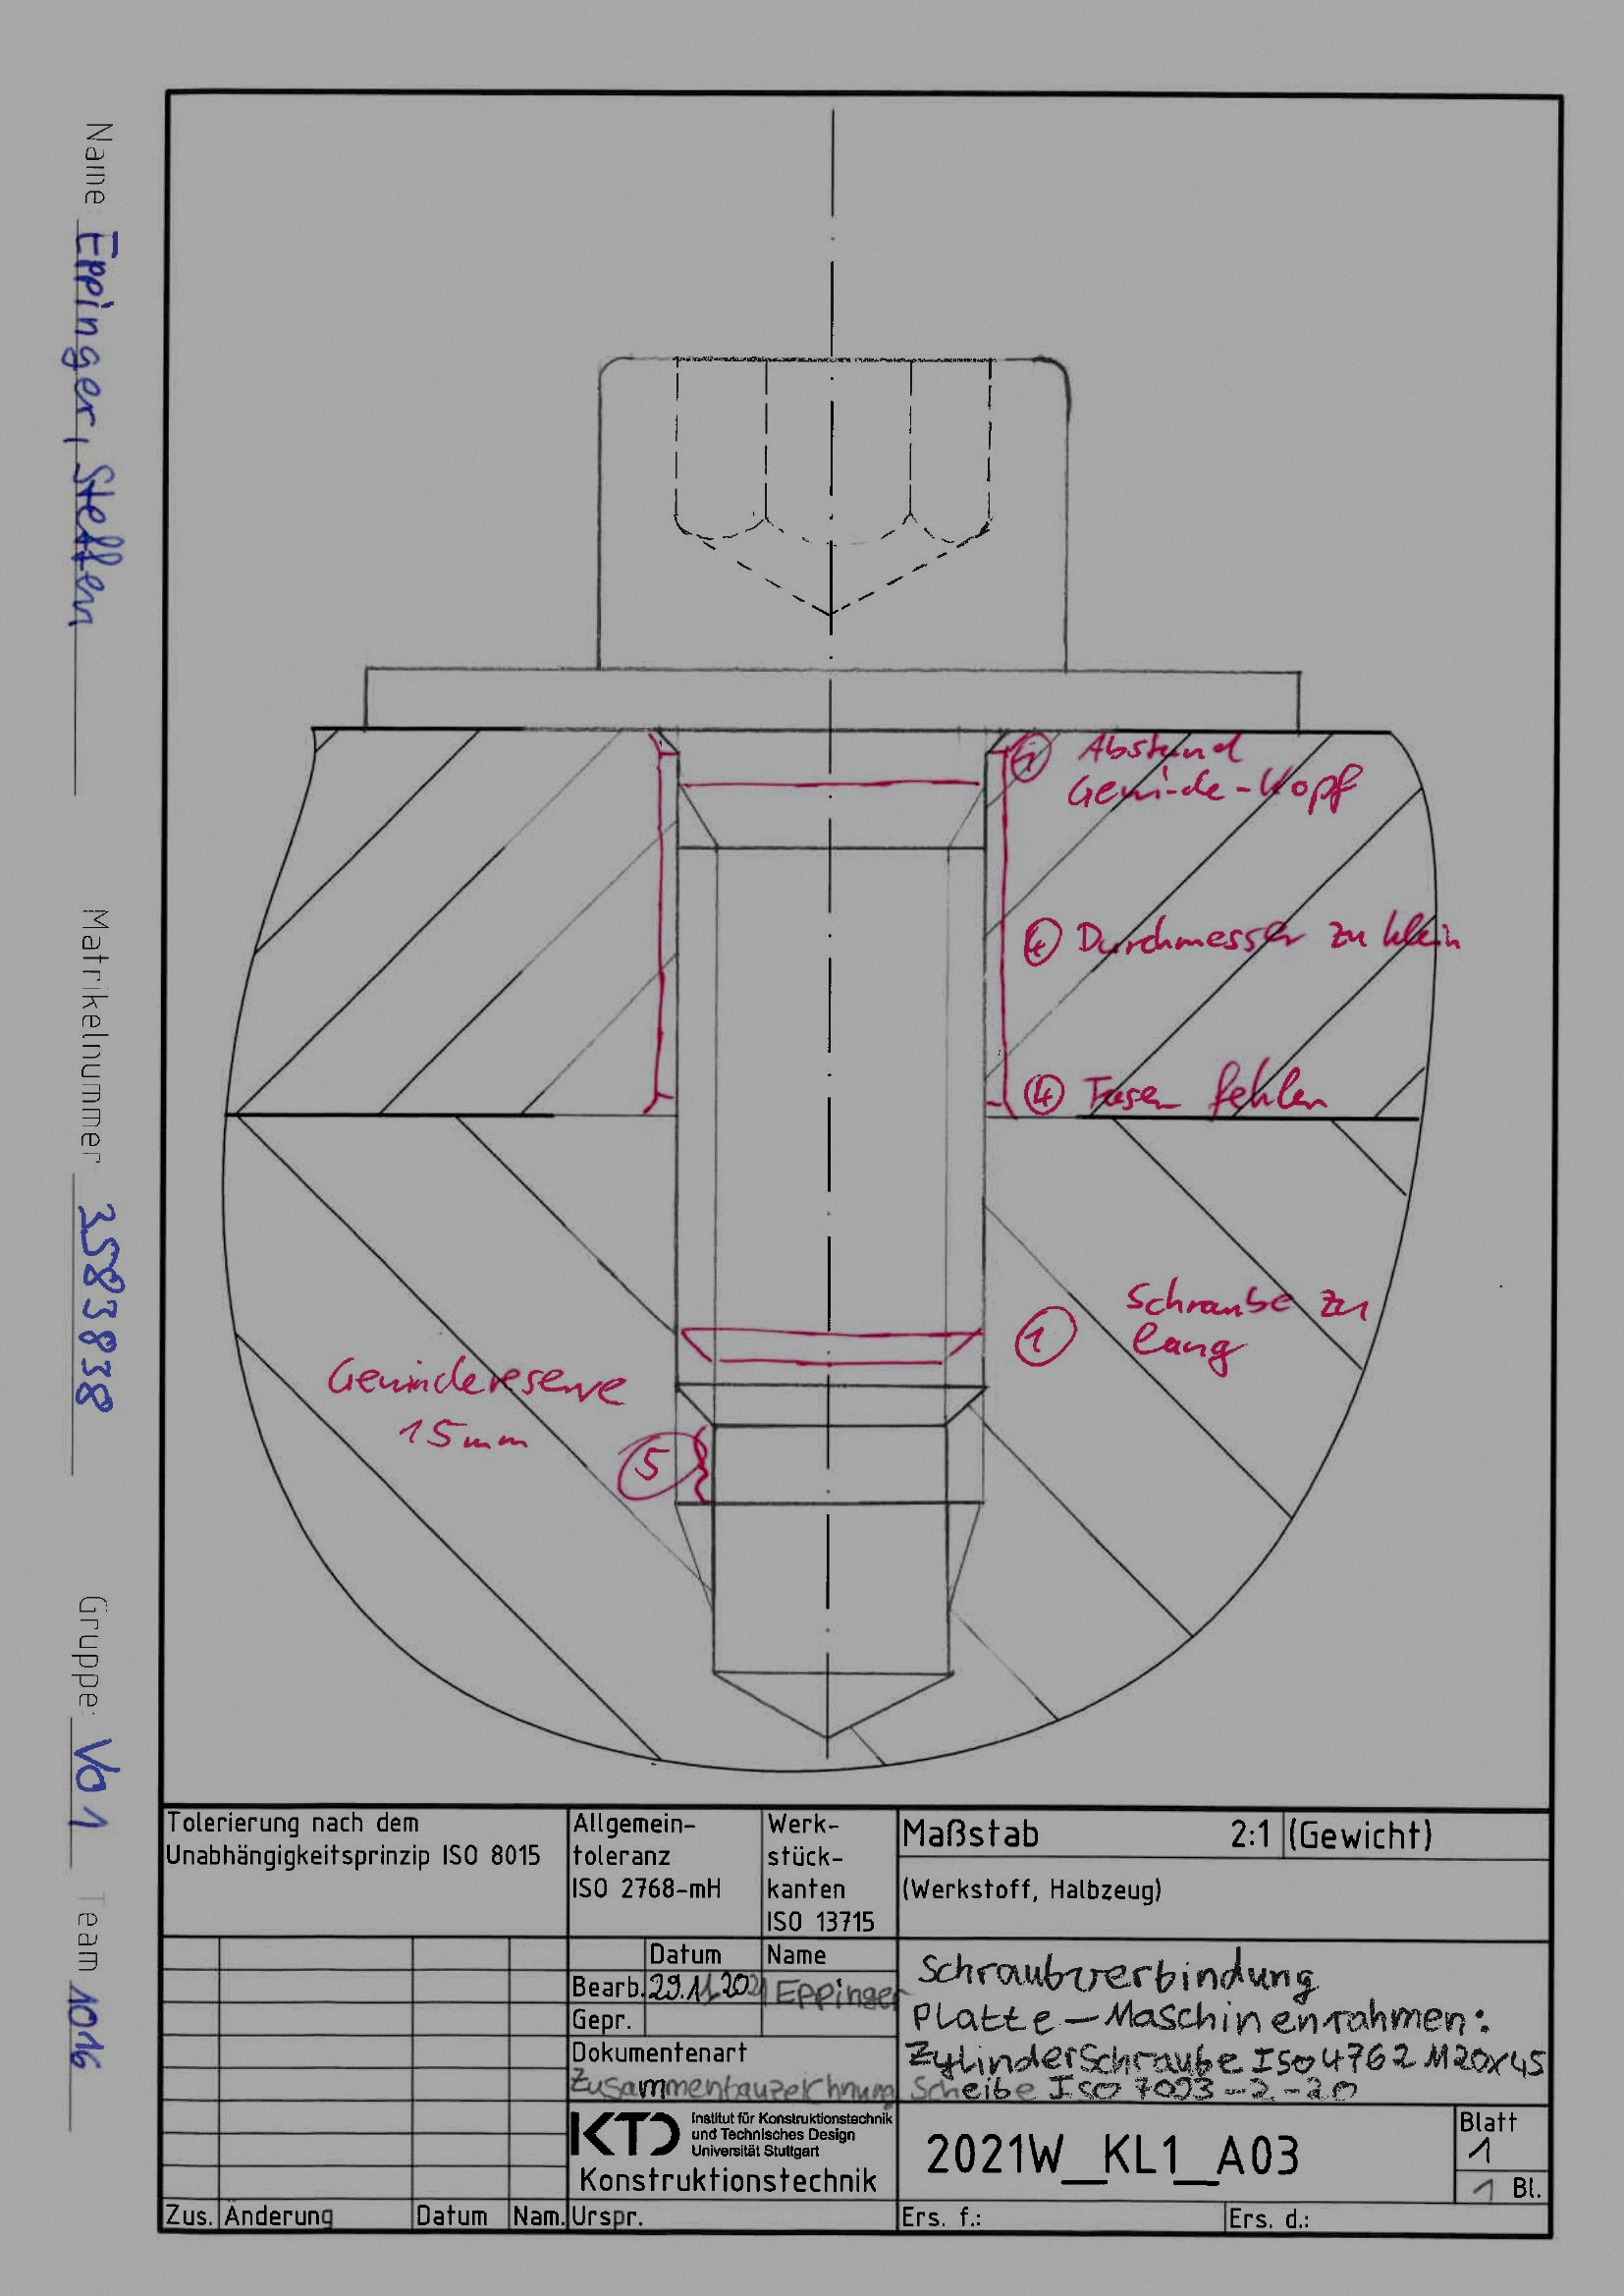 Name: Eppinger, Steffen
Matrikelnummer 3583838
Gruppe: Vo 1
Team 1016
Abstand
Gewinde-Kopf
④ Durchmesser zu klein
④ Fasen fehlen
① Schraube zu
lang
Gewindereserve
15mm
⑤
Tolerierung nach dem
Unabhängigkeitsprinzip ISO 8015
Allgemein-
toleranz
ISO 2768-mH
Werk-
stück-
kanten
ISO 13715
Maßstab 2:1 (Gewicht)
(Werkstoff, Halbzeug)
Datum Name
Bearb. 29.11.2021 Eppinger
Gepr.
Dokumentenart
Zusammenbauzeichnung
Schraubverbindung
Platte-Maschinenrahmen:
Zylinderschraube ISO4762 M20x45
Scheibe ISO 7093-2-20
KTD Institut für Konstruktionstechnik
und Technisches Design
Universität Stuttgart
Konstruktionstechnik
2021W_KL1_A03
Blatt
1
1 Bl.
Zus. Änderung Datum Nam. Urspr. Ers. f.: Ers. d.: